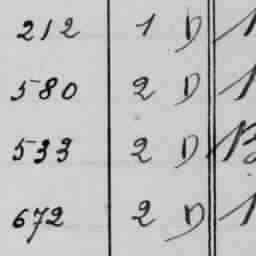 212 1 D
580 2 D
533 2 D B
672 2 D